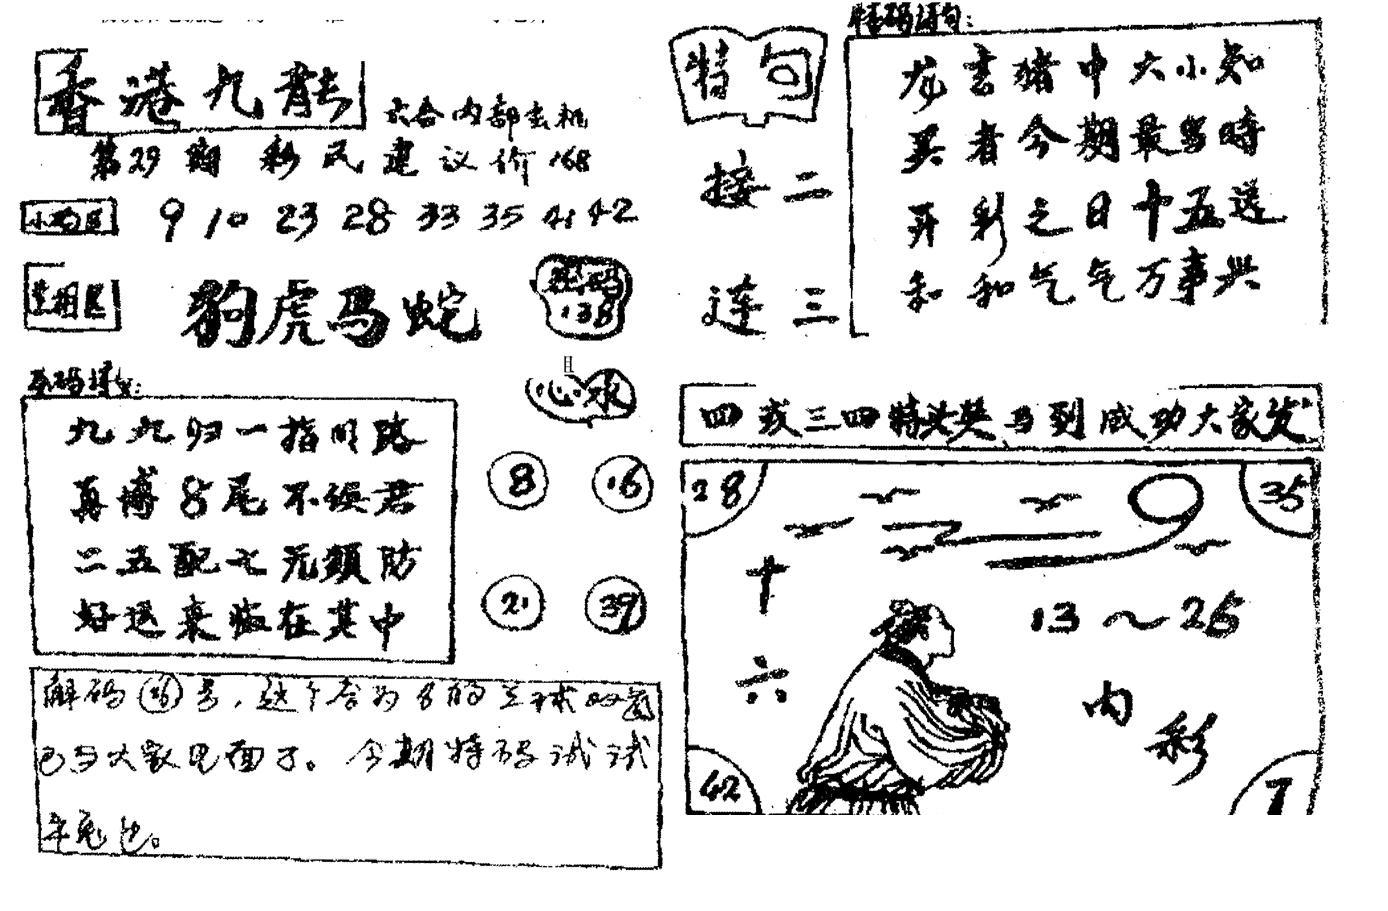 香港九龍
六合内部玄机
第29期 彩民建议价168
小码区 9 10 23 28 33 35 41 42
生相区 狗虎马蛇
138
心水
九九归一指明路
再博8尾不误君
二五配七无須防
好运来临在其中
8 16
21 39
解码 号,这个合为8的兰球双蓝
已与大家见面了。今期特码试试
羊兔也。
特句
接二
连三
特码诗句:
龙書猪中大小知
买者今期最当時
开彩之日十五送
和和气气万事兴
四或三四特头奖 马到成功大家发
28 35
十六
13～25
内彩
42 7